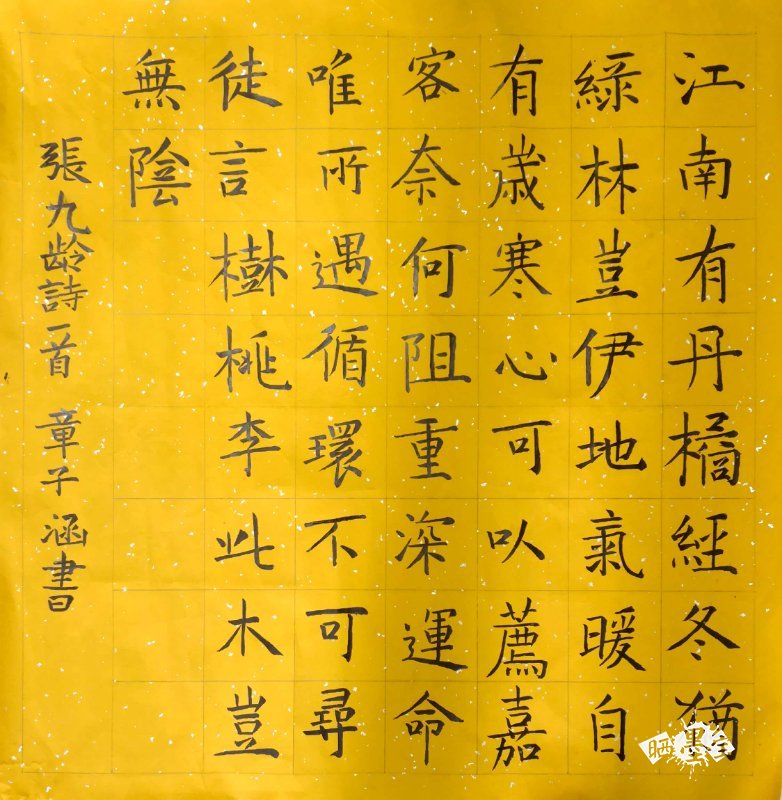 江南有丹橘經冬猶
綠林豈伊地氣暖自
有歲寒心可以薦嘉
客奈何阻重深運命
唯所遇循環不可尋
徒言樹桃李此木豈
無陰
張九龄詩一首 章子涵書
晒墨宝